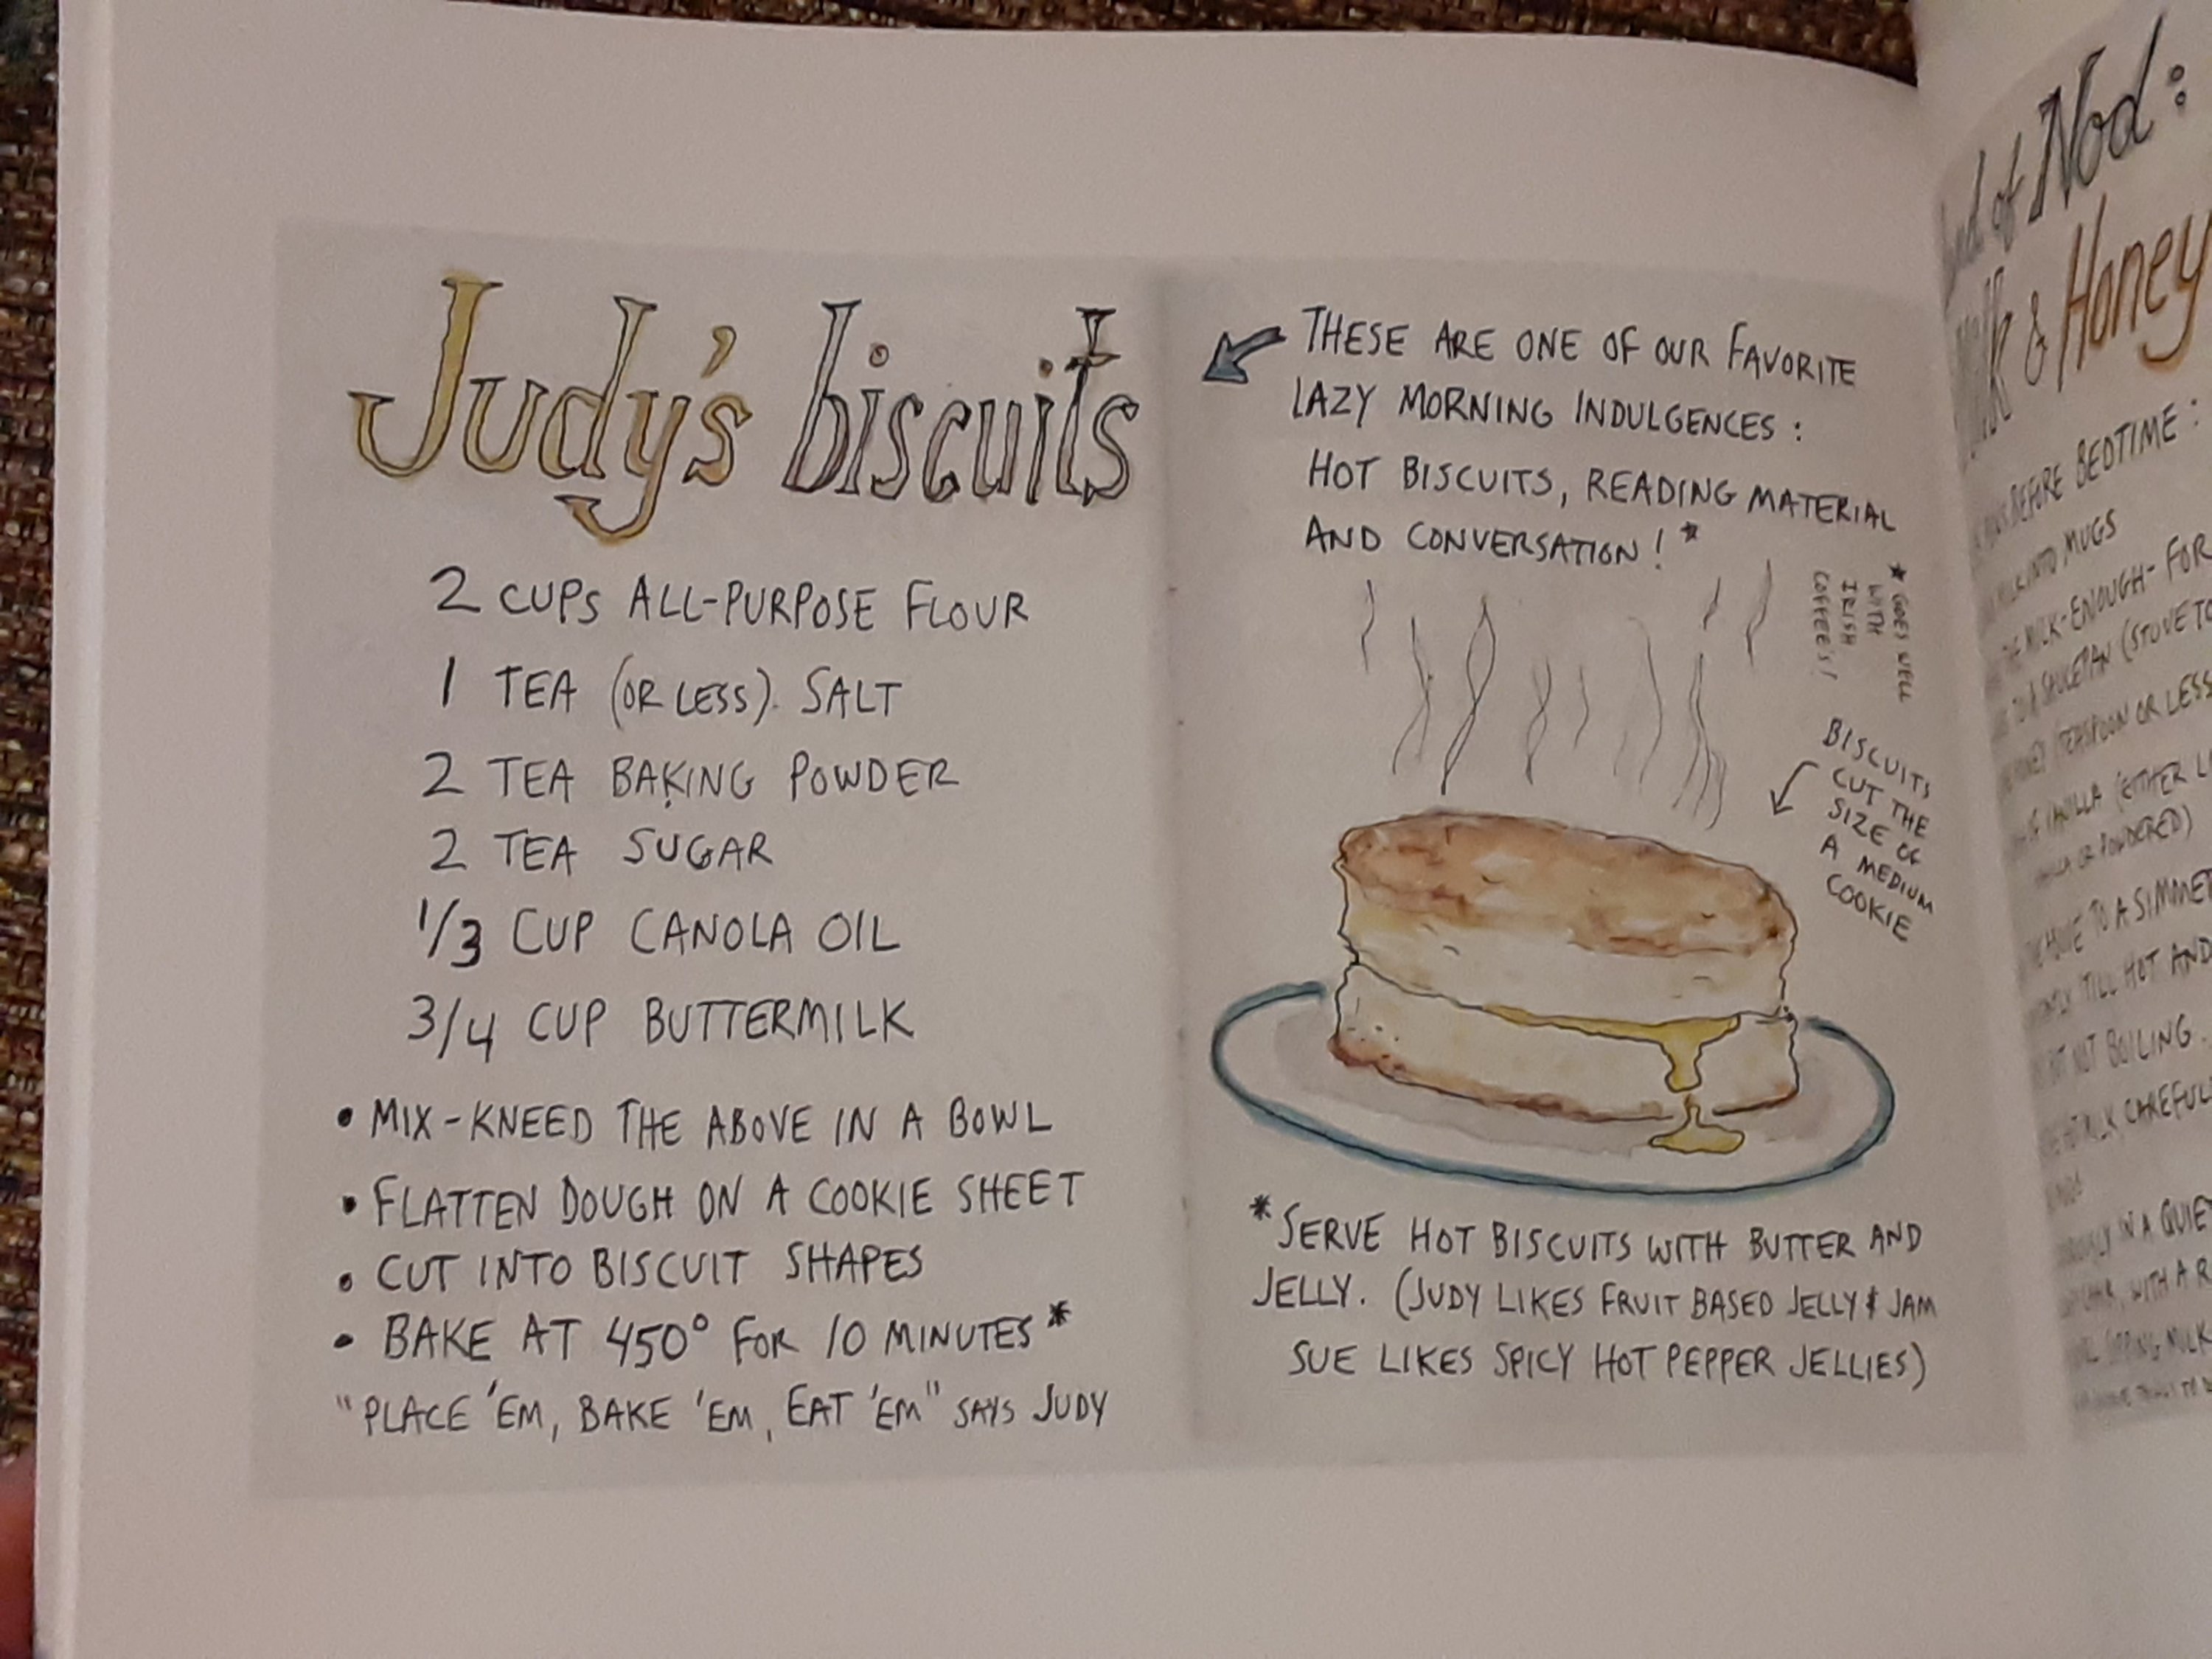 Judy's biscuits
2 CUPS ALL-PURPOSE FLOUR
1 TEA (OR LESS). SALT
2 TEA BAKING POWDER
2 TEA SUGAR
1/3 CUP CANOLA OIL
3/4 CUP BUTTERMILK
• MIX-KNEED THE ABOVE IN A BOWL
• FLATTEN DOUGH ON A COOKIE SHEET
• CUT INTO BISCUIT SHAPES
• BAKE AT 450° FOR 10 MINUTES *
"PLACE 'EM, BAKE 'EM, EAT 'EM" SAYS JUDY
THESE ARE ONE OF OUR FAVORITE
LAZY MORNING INDULGENCES :
HOT BISCUITS, READING MATERIAL
AND CONVERSATION! *
* GOES WELL
WITH
IRISH
COFFEE'S!
BISCUITS
CUT THE
SIZE OF
A MEDIUM
COOKIE
* SERVE HOT BISCUITS WITH BUTTER AND
JELLY. (JUDY LIKES FRUIT BASED JELLY & JAM
SUE LIKES SPICY HOT PEPPER JELLIES)
of Nod:
& Honey
BEFORE BEDTIME :
INTO MUGS
MILK-ENOUGH-FOR
TO A SAUCEPAN (STOVE TO
(TEASPOON OR LESS
VANILLA (EITHER LI
OR POWDERED)
TO A SIMMER
'TILL HOT AND
NOT BOILING.
CAREFUL
IN A QUIET
WITH A R